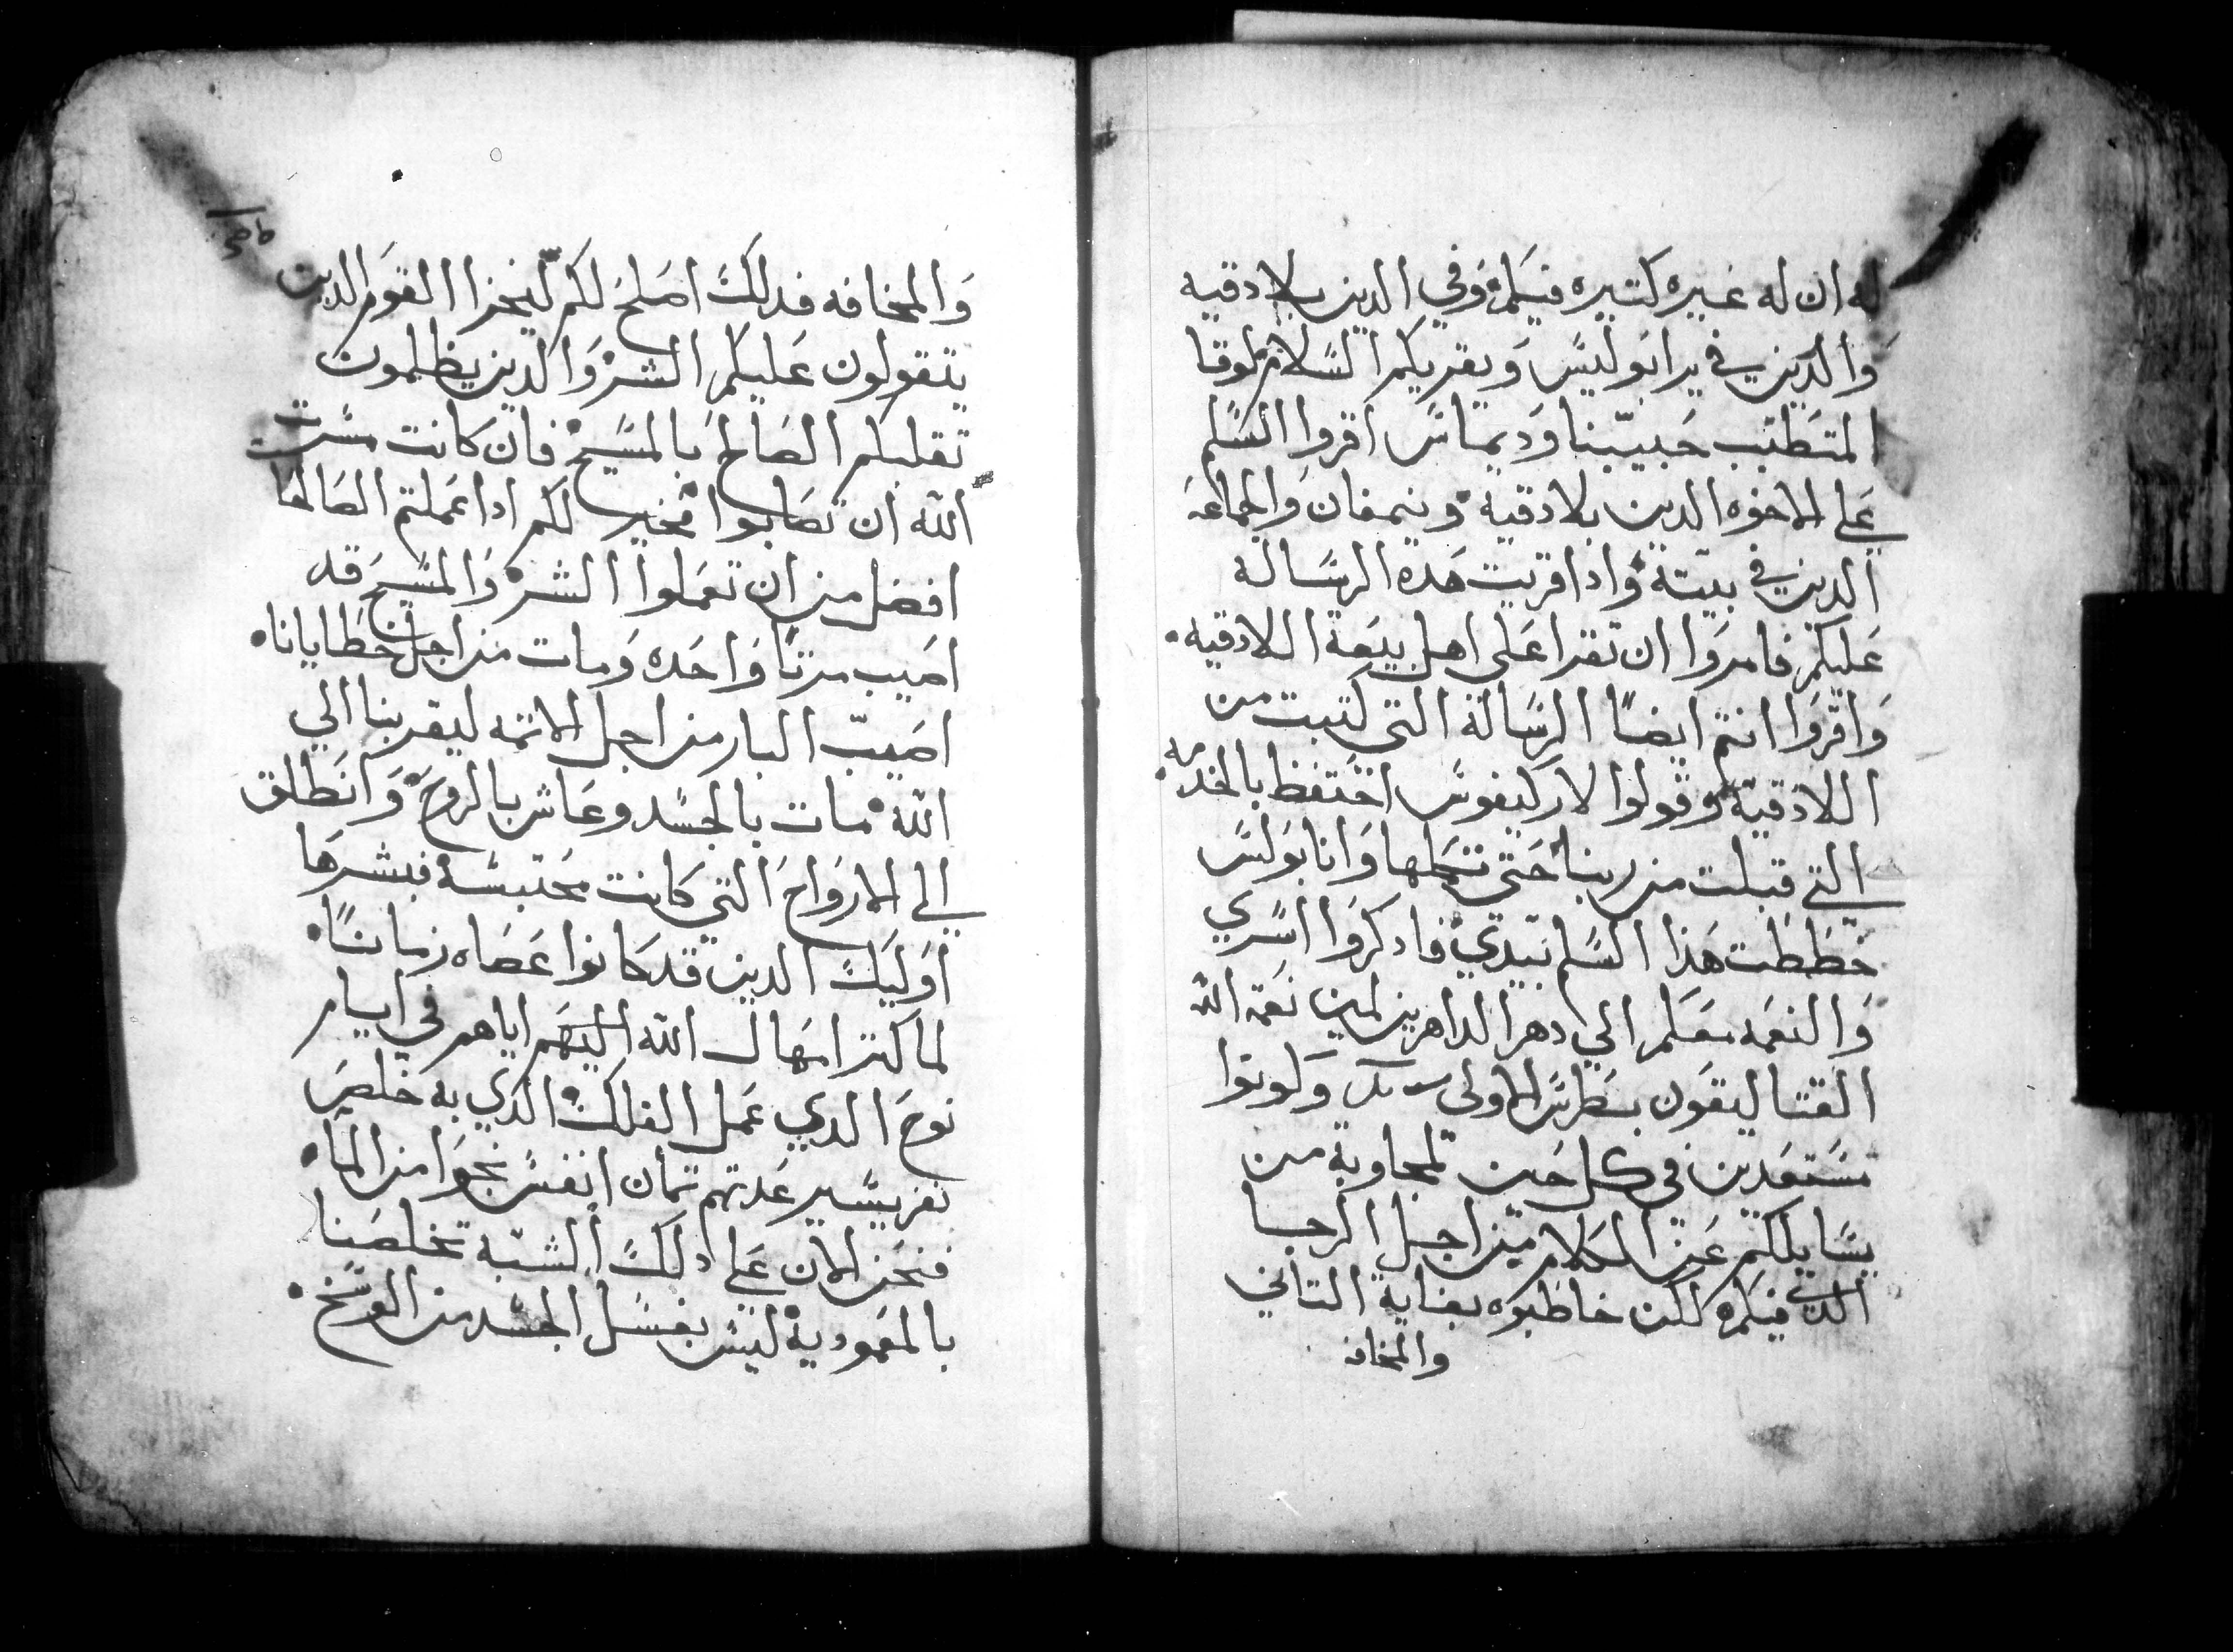 له ان له غيره كتيره فيكم وفي الدين بلادقيه
والدين في يرابوليس ويقريكم السلام لوقا
المتطبب حبيبنا وديماس اقروا السلم
على الاخوه الدين بلادقية ونمفان والجماعة
الدين في بيته واداقريت هده الرسالة
عليكم فامروا ان تقرا على اهل بيعة اللادقيه
واقروا انتم ايضا الرسالة التي كتبت من
اللادقية وقولوا لاركيفوس احتفظ بالخدمه
التي قبلت من ربنا حتى تتمها وانا بولس
خططت هذا السلم بيدي فادكروا اسري
والنعمه معكم الي دهر الداهرين امين نعمة الله
القتاليقون بطرس الاولى وكونوا
مستعدين في كل حين لمجاوبة من
يسايلكم عن الكلام من اجل الرجا
الذي فيكم لكن خاطبوه بغاية التاني
والمخافه
والمخافه فدلك اصلح لكم ليخزا القوم الدين
يتقولون عليكم الشر والدين يظلمون
تقلبكم الصالح بالمسيح فان كانت مسرت
الله ان تصابوا فخير لكم اداعملتم الصالحا
افضل من ان تعملوا الشر والمسيح قد
اصيب مرتا واحده ومات من اجل خطايانا
اصيب البار من اجل الاتمه ليقربنا الي
الله مات بالجسد وعاش بالروح وانطلق
الي الارواح التي كانت محتبسة فبشرها
اوليك الدين قد كانوا عصاه زمانا
لما كتر امهال الله اليهم اياهم في ايام
نوح الدي عمل الفلك الدي به خلص
نفر يسير عدتهم تمان انفس نجوا من الما
فنحن الان على دلك الشبه تخلصنا
بالمعمودية ليس بغسل الجسد من الوسخ